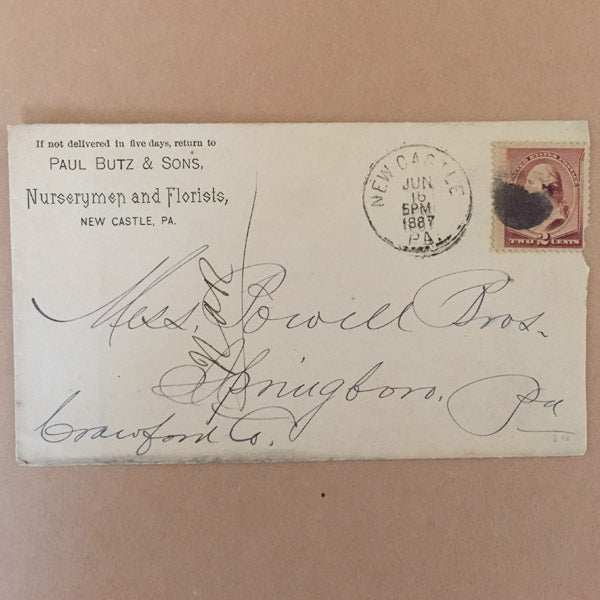 If not delivered in five days, return to
PAUL BUTZ & SONS,
Nurserymen and Florists,
NEW CASTLE, PA.
NEW CASTLE
JUN
16
5PM
1887
PA.
UNITED STATES POSTAGE
TWO 2 CENTS
Mess. Powell Bros.
Springboro, Pa
Crawford Co.